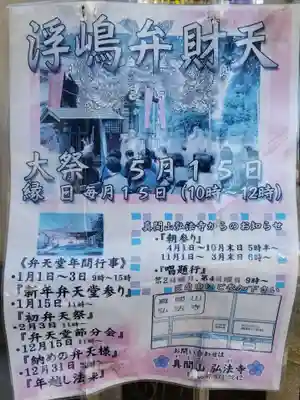 浮嶋弁財天
大祭 5月15日
縁日 毎月15日(10時~12時)
真間山弘法寺からのお知らせ
・『朝参り』
4月1日~10月末日 5時半~
11月1日~ 3月末日 6時~
・『唱題行』
第2日曜日、第4日曜日 9時~
真間山
弘法寺
お問い合わせは
真間山 弘法寺
《弁天堂年間行事》
・1月1日~3日 9時~15時
『新年弁天堂参り』
・1月15日 11時~
『初弁天祭』
・2月3日 11時~
『弁天堂節分会』
・12月15日 11時~
『納めの弁天様』
・12月31日
『年越し法要』